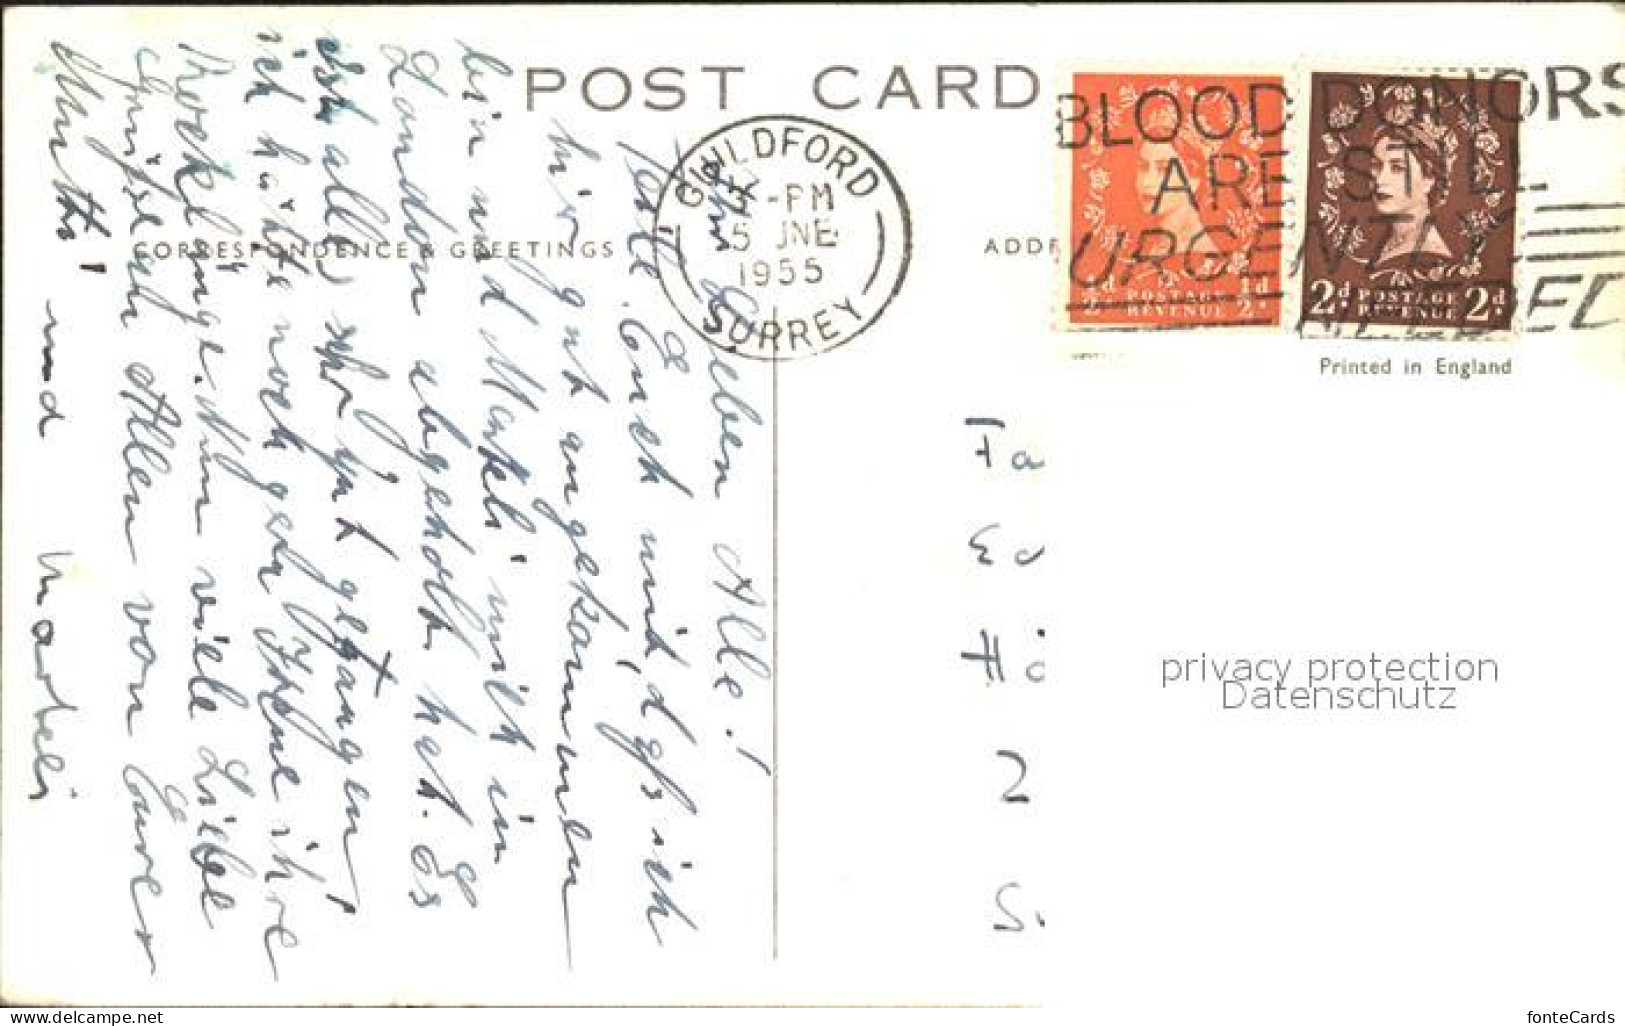 POST CARD
CORRESPONDENCE & GREETINGS
ADDR
GUILDFORD
-PM
5 JNE
1955
SURREY
BLOOD DONORS
ARE STILL
URGENTLY
NEEDED
½d POSTAGE REVENUE ½d
2d POSTAGE REVENUE 2d
Printed in England
Ihr Lieben Alle!
teile Euch mit, dass ich
hir gut angekommen
bin und Marteli mich in
London abgeholt hat. Es
ist alles sehr gut gegangen,
ich hätte noch gern ihre
Nun viele Liebe
Grüsse an Allen von Eurer
Mutti und Marteli
Fa
Ed
Hö
Z
S
privacy protection
Datenschutz
www.delcampe.net
fonteCards